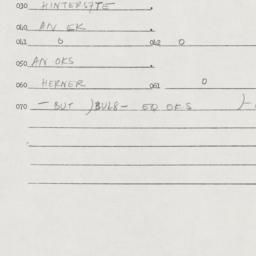 030 HINTERSITE
040 AN EK
041 0 042 0
050 AN OKS
060 HERNER 061 0
070 - BUT ) BULS - EQ OKS )-